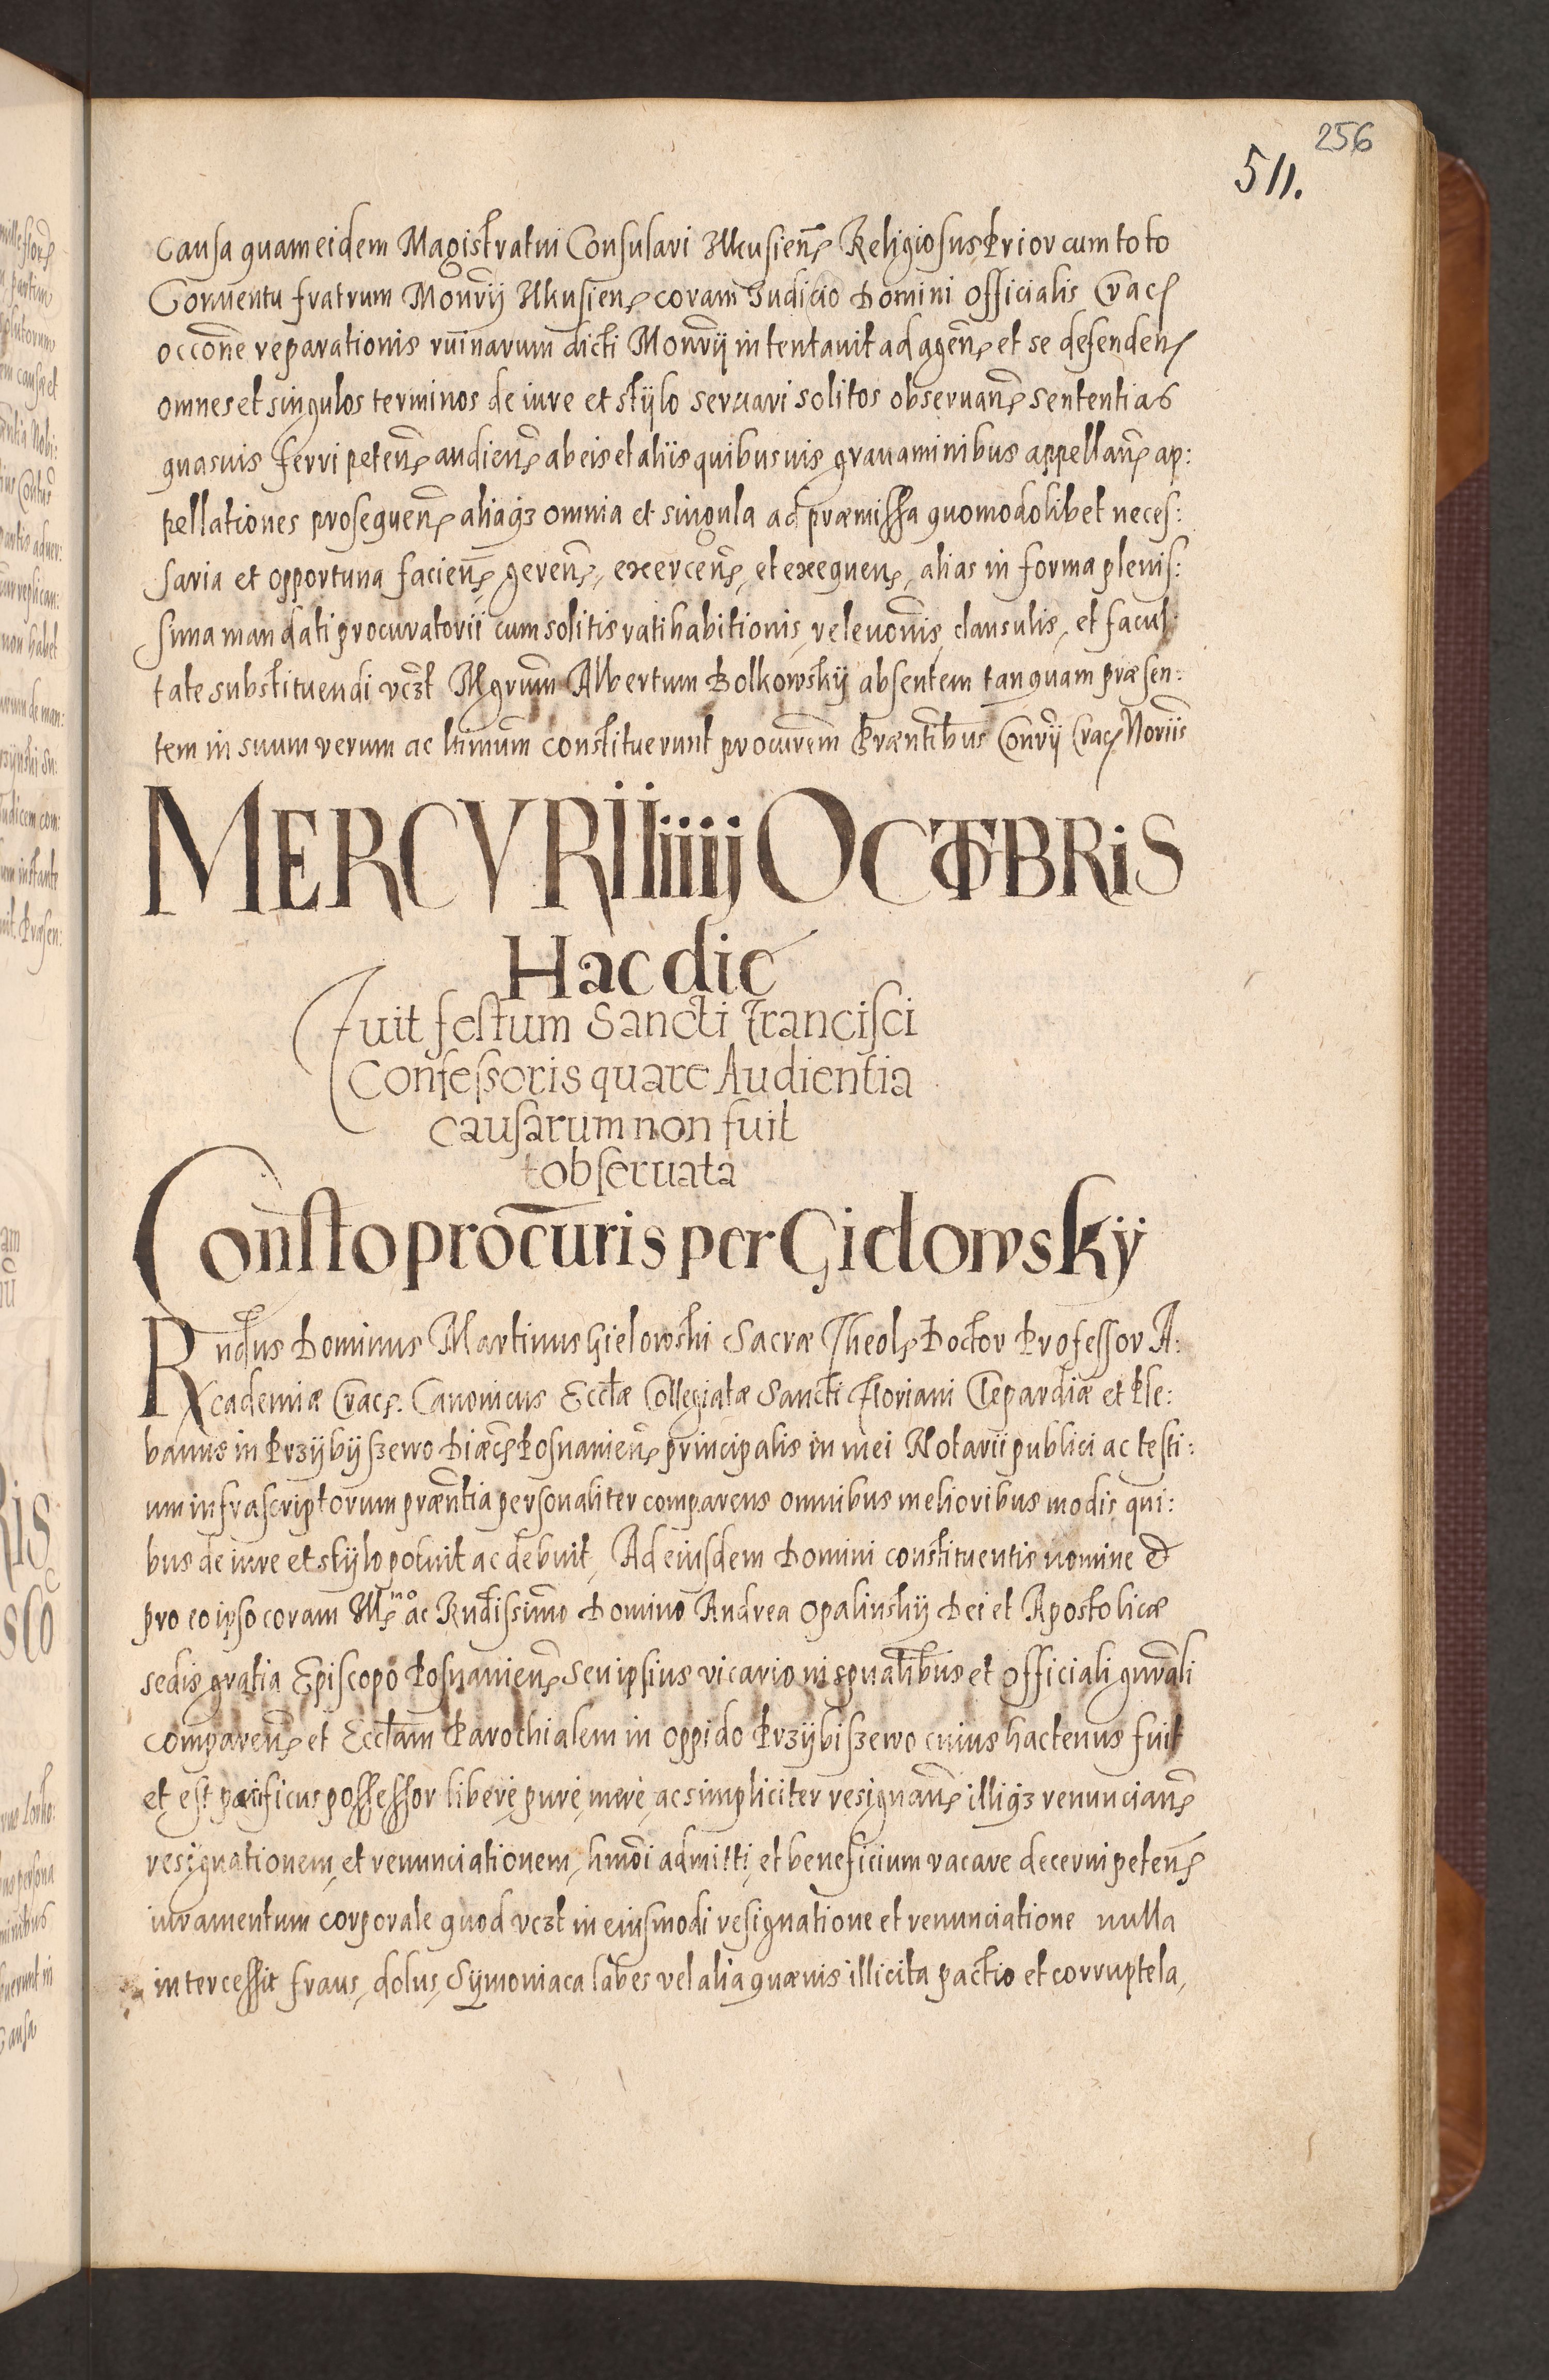 256
511.
Causa quam eidem Magistratui Consulari Ilkusien̄ Religiosus Prior cum toto
Conuentu fratrum Monrÿ Ilkusien̄ coram Iudicio Domini Officialis Crac̄
occōne reparationis ruinarum dicti Monrÿ intentauit ad agen̄ et se defenden̄
omnes et singulos terminos de iure et stÿlo seruari solitos obseruan̄ sententias
quasuis ferri peten̄ audien̄ ab eis et aliis quibusuis grauaminibus appellan̄ ap:
pellationes prosequen̄ aliaqꝫ omnia et singula ad præmissa quomodolibet neces:
saria et opportuna facien̄, geren̄, exercen̄, et exequen̄, alias in forma plenis:
sima mandati procuratorii cum solitis ratihabitionis, releuōnis, clausulis, et facul:
tate substituendi vcꝫt Mgrum Albertum Bolkowskÿ absentem tanquam præsen:
tem in suum verum ac ltimum constituerunt procurem Præntibus Conrÿ Crac̄ Noriis
MERCVRII iiij OCTOBRiS
Hac die
Fuit festum Sancti Francisci
Confessoris quare Audientia
causarum non fuit
obseruata
Constō procuris per Gielowskÿ
Rndus Dominus Martinus Gielowski Sacræ Theol̄ Doctor Professor A:
cademiæ Crac̄. Canonicus Ecclæ Collegiatæ Sancti Floriani Clepardiæ et Ple:
banus in Przÿbÿszewo Diæc̄ Posnanien̄ principalis in mei Notarii publici ac testi:
um infrascriptorum præntia personaliter comparens omnibus melioribus modis qui:
bus de iure et stÿlo potuit ac debuit, Ad eiusdem Domini constituentis nomine et
pro eo ipso coram Illr̄ⁿᵒ ac Rndissimo Domino Andrea Opalinskÿ Dei et Apostolicæ
sedis gratia Episcopo Posnanien̄ seu ipsius vicario in spualibus et Officiali gnrali
comparen̄ et Ecclam Parochialem in oppido Przÿbiszewo cuius hactenus fuit
et est pacificus possessor liberè, purè, merè, ac simpliciter resignan̄ illiqꝫ renuncian̄
resignationem, et renunciationem, hmōi admitti, et beneficium vacare decerni peten̄
iuramentum corporale quod vcꝫt in eiusmodi resignatione et renunciatione nulla
intercessit fraus, dolus, Sÿmoniaca labes vel alia quæuis illicita pactio et corruptela,